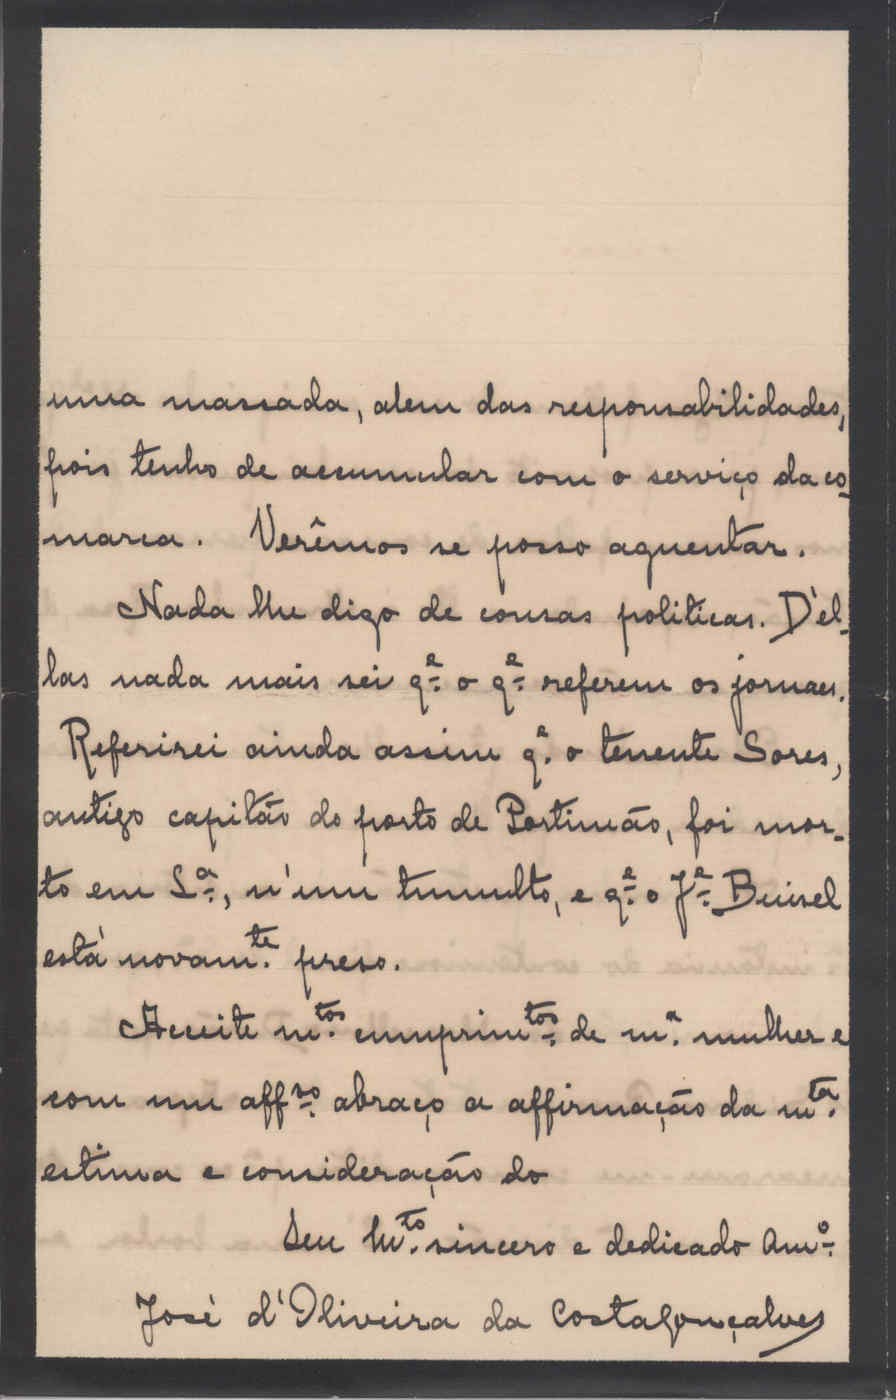 uma massada, alem das responsabilidades,
pois tenho de accumular com o serviço da co-
marca. Verêmos se posso aguentar.
Nada lhe digo de cousas politicas. D'el-
las nada mais sei q.e o q.e referem os jornaes.
Referirei ainda assim q.e o tenente Soares,
antigo capitão do porto de Portimão, foi mor-
to em L.a, n'um tumulto, e q.e o J.e Buisel
está novam.te preso.
Acceite m.tos cumprim.tos de m.a mulher e
com um aff.so abraço a affirmação da m.ta
estima e consideração do
Seu M.to sincero e dedicado Am.o
José d'Oliveira da Costa Gonçalves